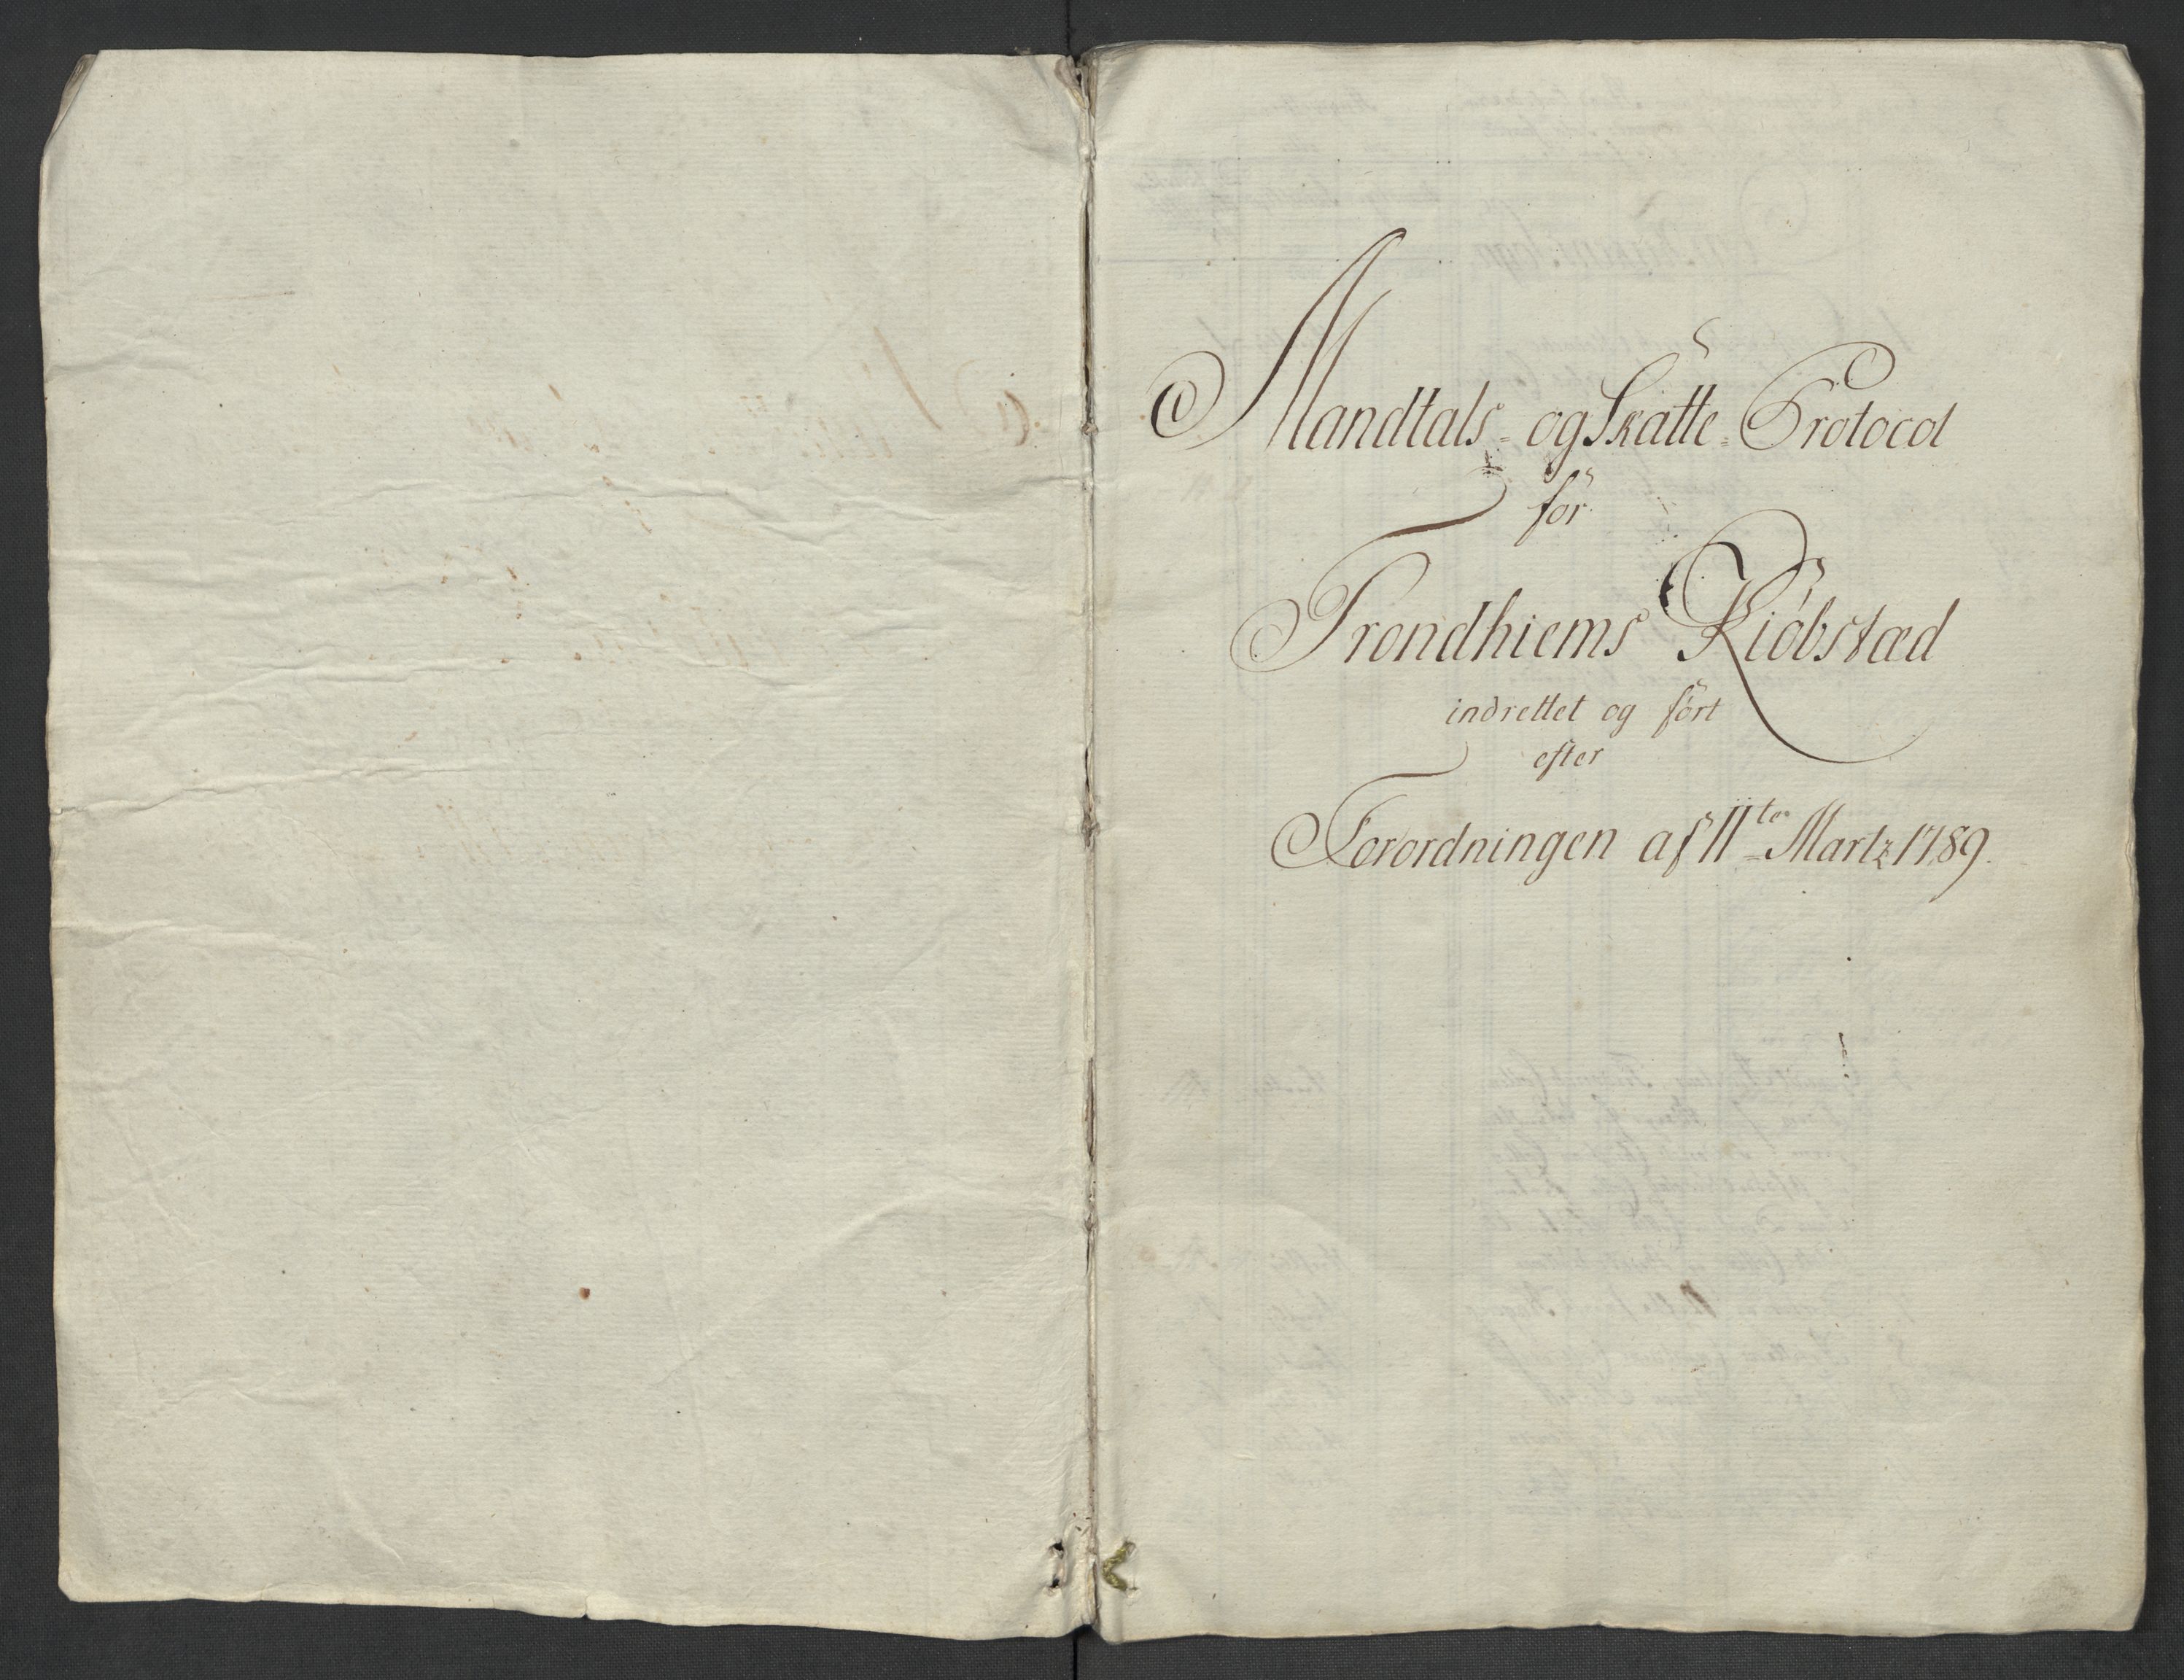 Mandtals- og Skatte-Protocol
for
Trondhiems Kiøbstæd
indrettet og ført
efter
Forordningen af 11ten Martz 1789.